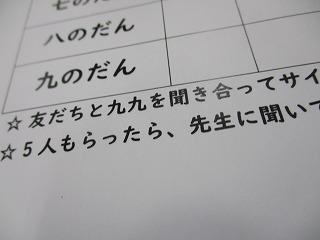 七のだん
八のだん
九のだん
☆友だちと九九を聞き合ってサイ
☆5人もらったら、先生に聞いて